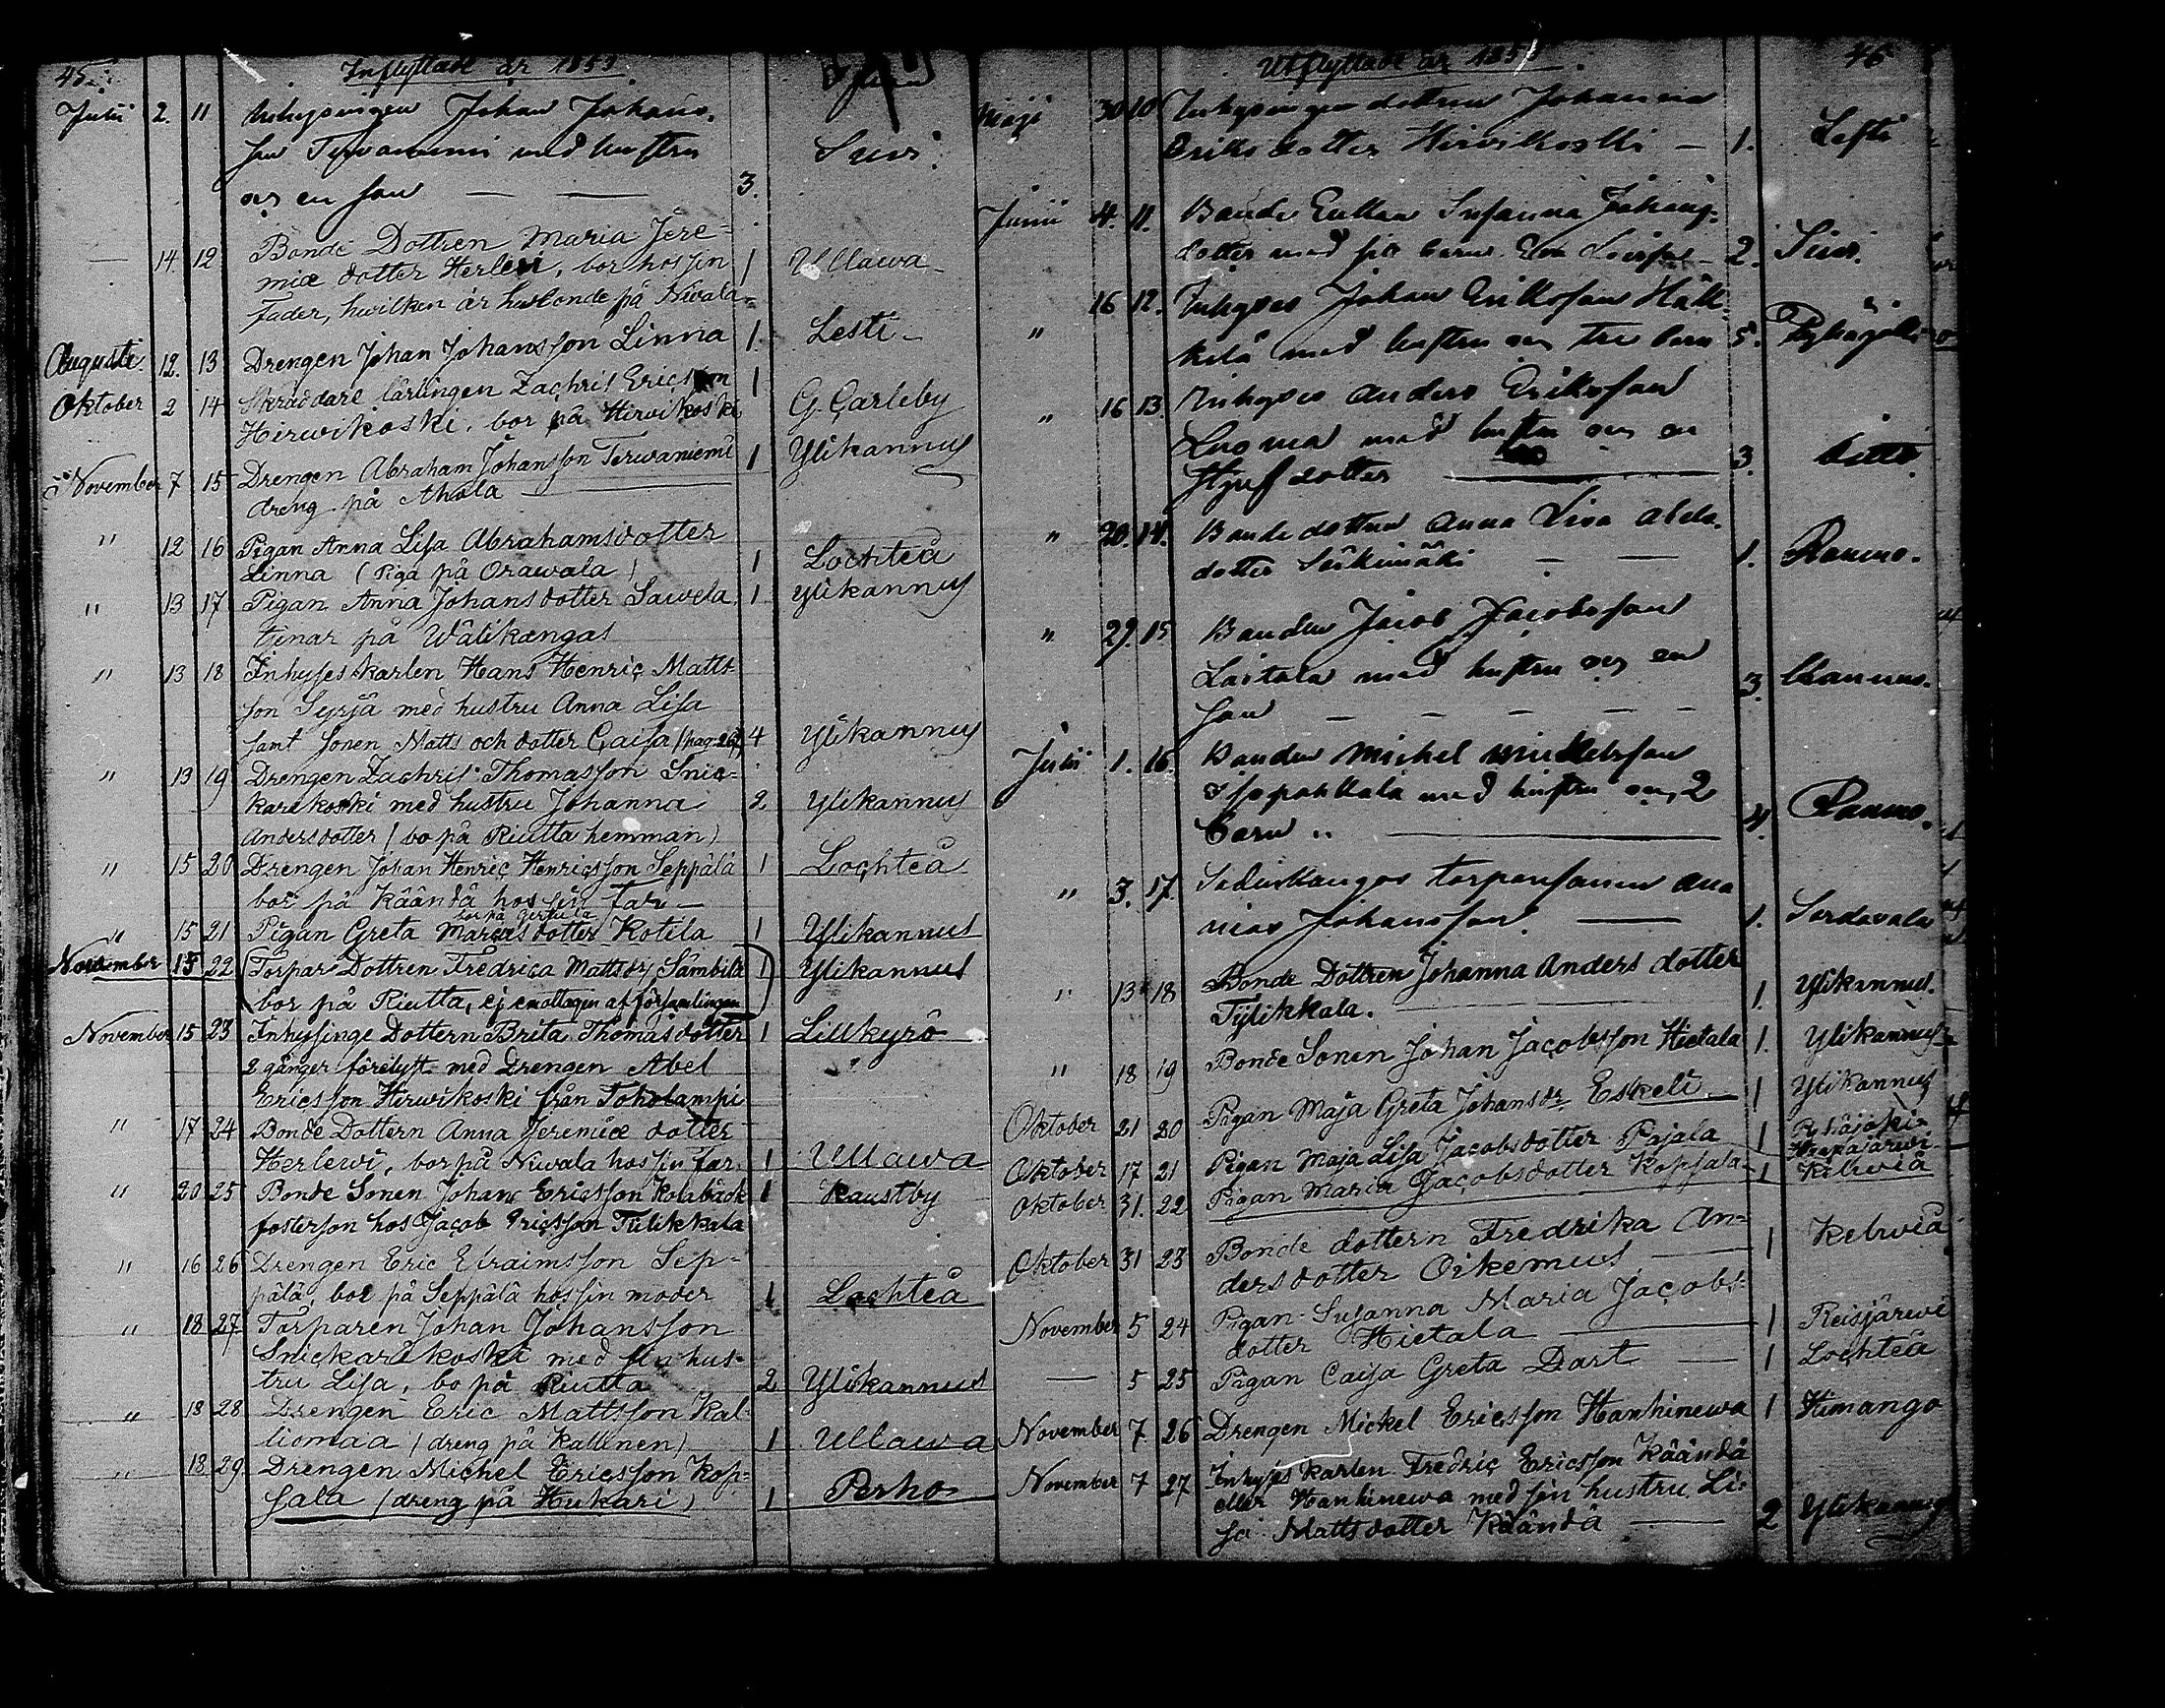 45.
Inflyttade år 1853
Julii 2. 11 Inhysingen Johan Johans-
son Terwaniemi med hustru Siwi.
och en son — — 3.
— 14. 12 Bonde Dottren Maria Jere-
miæ dotter Herlewi, bor hos sin 1 Ullawa
Fader, hwilken är husbonde på Niwala
Augusti 12. 13 Drengen Johan Johansson Linna 1. Lesti
Oktober 2 14 Skräddare lärlingen Zachris Ericsson 1
Hirwikoski, bor på Hirwikoski G. Carleby
November 7 15 Drengen Abraham Johansson Terwaniemi 1 Ylikannus
dreng på Ahola
" 12 16 Pigan Anna Lisa Abrahamsdotter
Linna (Piga på Orawala) 1 Lochteå
" 13 17 Pigan Anna Johansdotter Sawela 1 Ylikannus
tjenar på Wälikangas
" 13 18 Inhyses karlen Hans Henric Matts-
son Syrjä med hustru Anna Lisa
samt sonen Matts och dotter Caisa (pag. 267) 4 Ylikannus
" 13 19 Drengen Zachris Thomasson Snic-
karekoski med hustru Johanna 2 Ylikannus
Andersdotter (bo på Riutta hemman)
" 15 20 Drengen Johan Henric Henricsson Seppälä 1 Lochteå
bor på Kääntä hos sin far —
" 15 21 Pigan Greta Marcusdotter Kotila 1 Ylikannus
November 15 22 Torpare Dottren Fredrica Mattsdr Sämbilä 1 Ylikannus
bor på Riutta, ej emottagen af församlingen
November 15 23 Inhysinge Dottern Brita Thomasdotter 1 Lillkyro
2 gånger förelyst med Drengen Abel
Ericsson Hirwikoski från Toholampi
" 17 24 Bonde Dottern Anna Jeremiæ dotter
Herlewi, bor på Niwala hos sin far. 1 Ullawa
" 20 25 Bonde Sonen Johan Ericsson Kolabäck 1 Kaustby
fosterson hos Jacob Ericsson Tulikkala
" 16 26 Drengen Eric Efraimsson Sep-
pälä, bor på Seppälä hos sin moder 1 Lochteå
" 18 27 Torparen Johan Johansson
Snickarekoski med sin hus-
tru Lisa, bo på Riutta 2 Ylikannus
" 18 28 Drengen Eric Mattsson Kal-
liomaa (dreng på Kallinen) 1 Ullawa
" 18 29 Drengen Michel Ericsson Kop-
sala (dreng på Hukari) 1 Perho
Utflyttade år 1853 46
Maji 30 10 Inhysingedottren Johanna
Eriksdotter Hirvikoski — 1. Lesti
Junii 4. 11. Bonde Enkan Susanna Johans-
dotter med sitt barn 2. Siwi.
" 16 12. Inhyses Johan Eriksson Häk-
kilä med hustru och tre barn 5. Pyhäjoki
" 16 13. Inhyses Anders Eriksson
Luoma med hustru och en
styfdotter 3. ditto.
" 20. 14. Bondedottren Anna Lisa Abels-
dotter Särkimäki — — 1. Raumo.
" 29. 15. Bonden Jacob Jacobsson
Laitala med hustru och en
son — — — — 3. Kannus.
Julii 1. 16. Bonden Michel Mickelsson
Isopahkala med hustru och 2
barn 4. Raumo.
" 3. 17. Torparesonen Ana-
nias Johansson. 1. Sordavala
" 13 18 Bonde Dottren Johanna Anders dotter
Tylikkala. 1 Ylikannus.
" 18 19 Bonde Sonen Johan Jacobsson Hietala 1. Ylikannus
Oktober 21 20 Pigan Maja Greta Johansdr Eskeli 1 Ylikannus
Oktober 17 21 Pigan Maja Lisa Jacobsdotter Pajala 1 Pyhäjoki Haapajärwi
Oktober 31. 22 Pigan Maria Jacobsdotter Kopsala 1 Kelwiå
Oktober 31 23 Bonde dottern Fredrika An-
dersdotter Oikemus 1 Kelwiå
November 5 24 Pigan Susanna Maria Jacobs-
dotter Hietala 1 Reisjärwi
— 5 25 Pigan Caisa Greta Dart — 1 Lochteå
November 7. 26 Drengen Mickel Ericsson Hanhinewa 1 Himango
November 7 27 Inhyses karlen Fredric Ericsson Kääntä
eller Hanhinewa med sin hustru Li-
sa Mattsdotter Kääntä — 2 Ylikannus